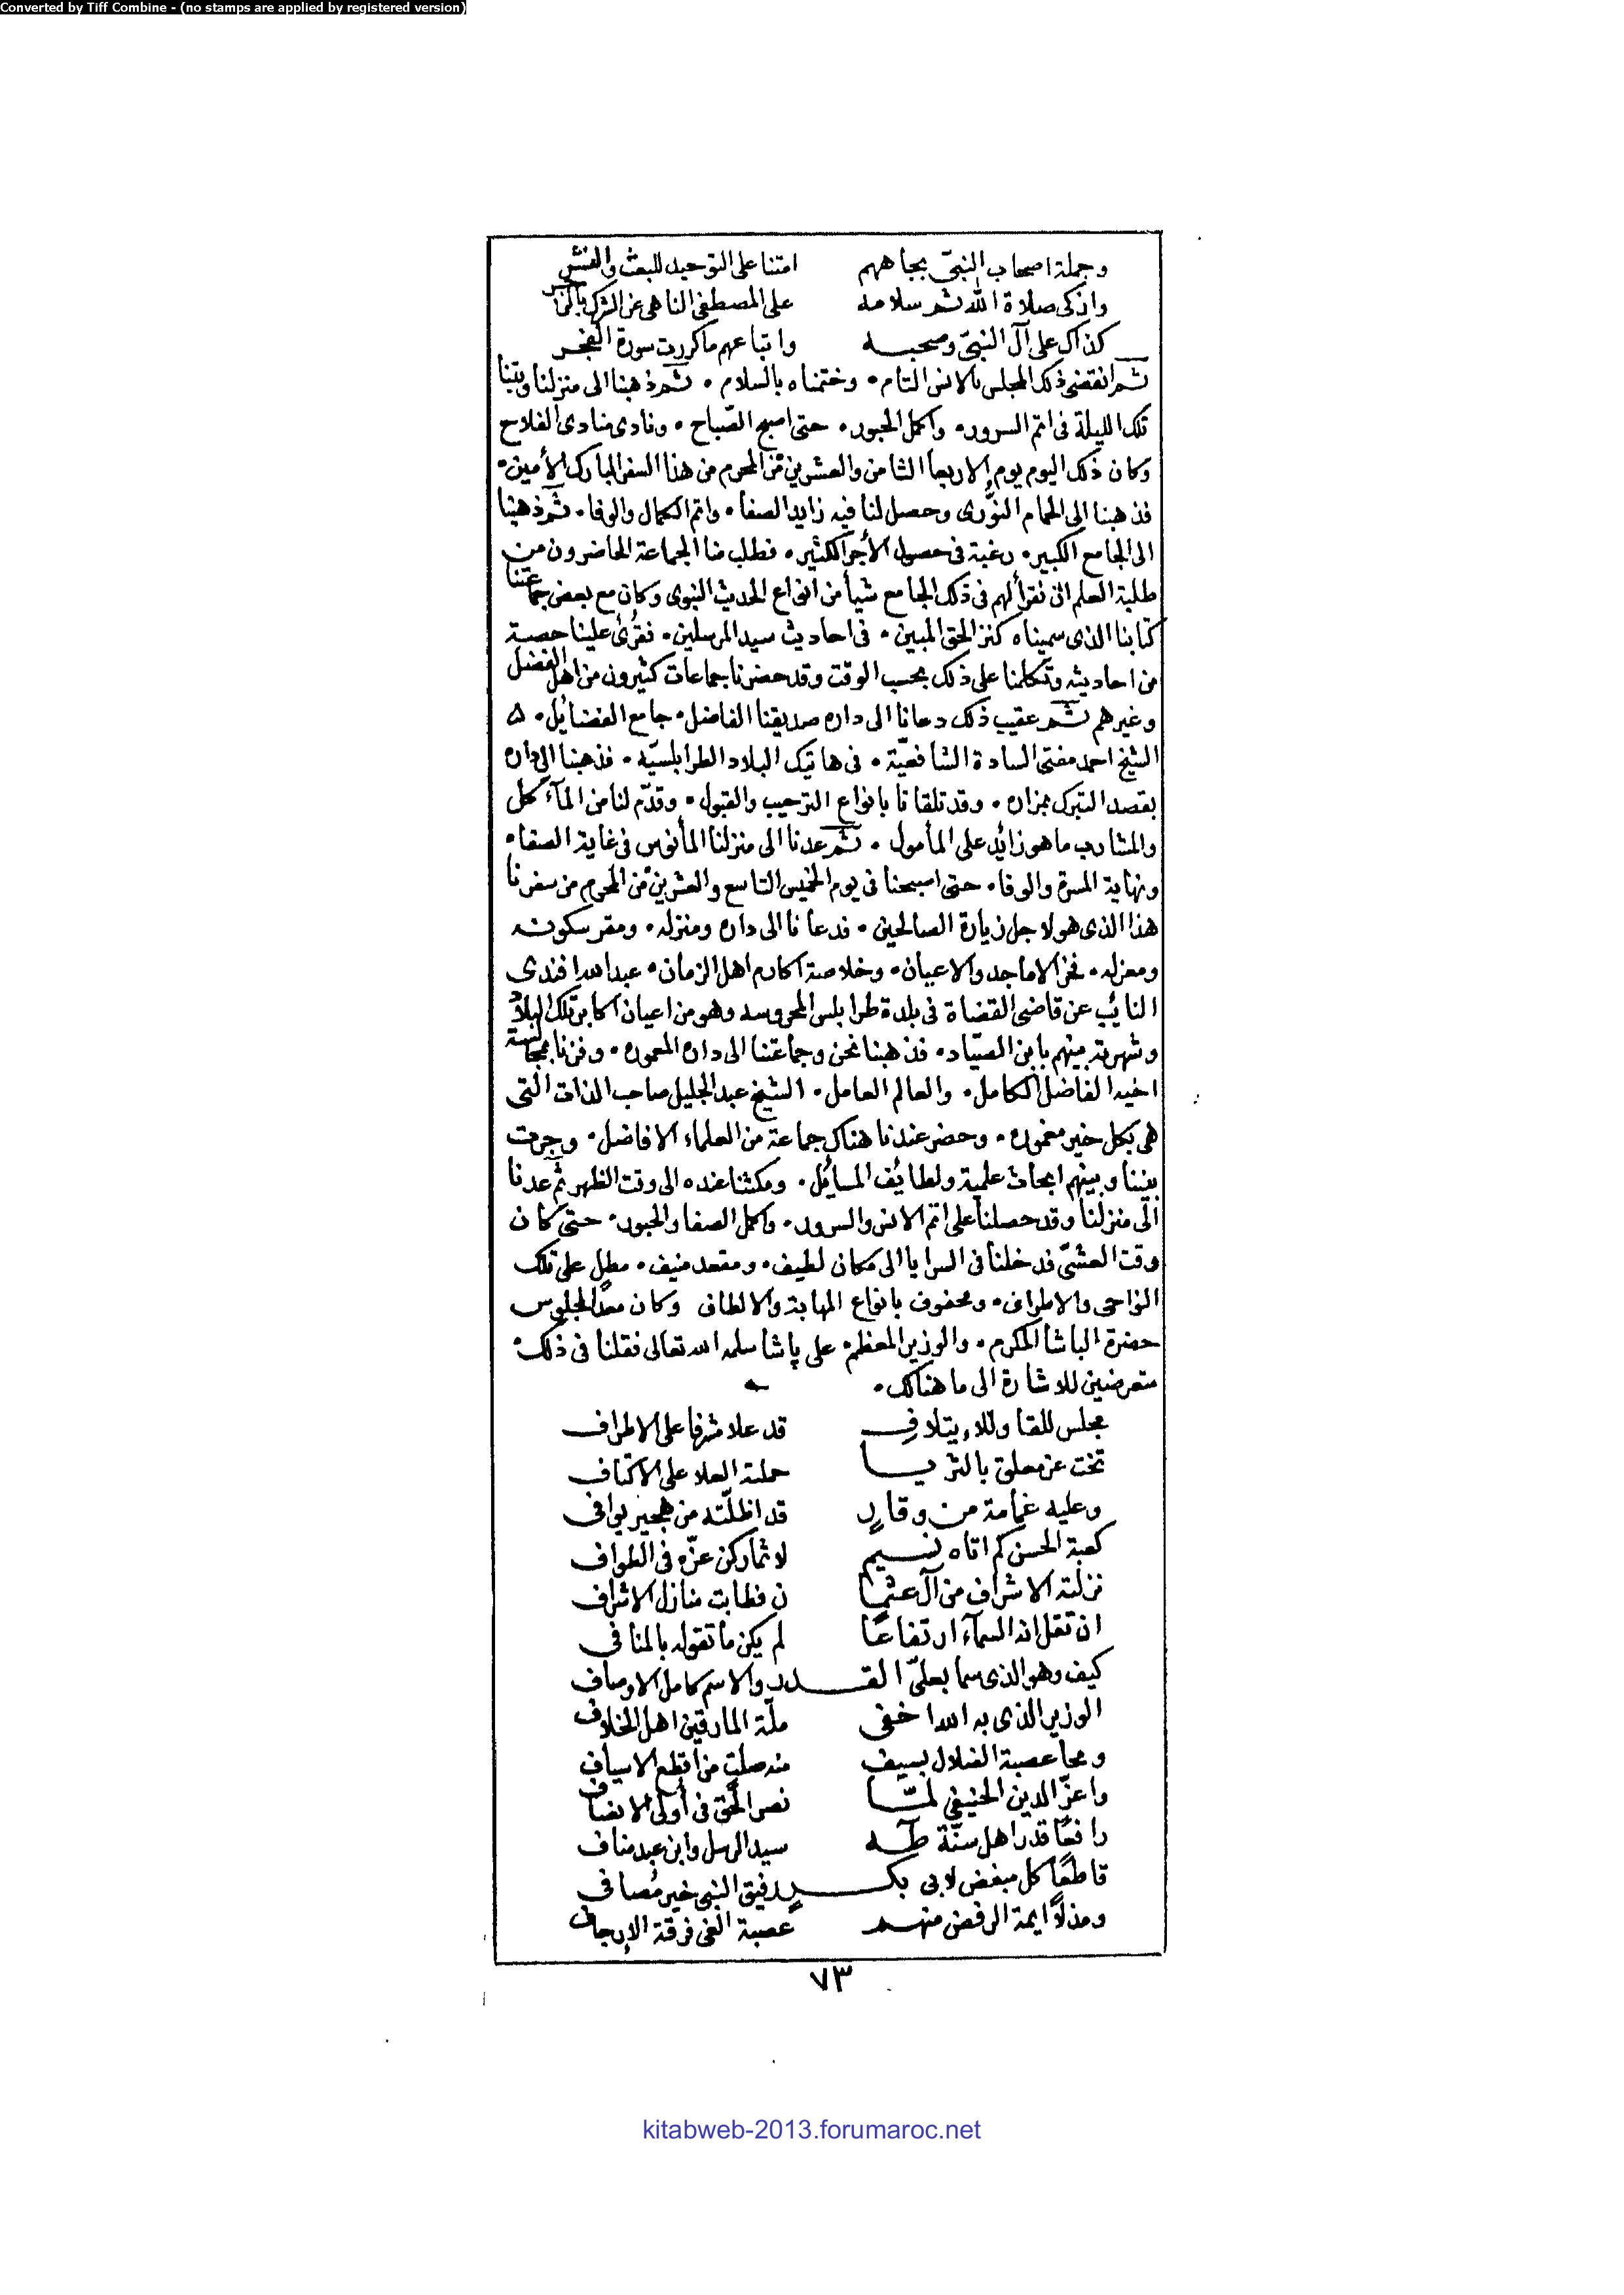 Converted by Tiff Combine - (no stamps are applied by registered version)
وجملة اصحاب النبيّ بجاههم امتنا على التوحيد للبعث والنشر
وازكى صلاة الله ثم سلامه على المصطفى الناهى عن الشرك بالزجر
كذاك على آل النبيّ وصحبه واتباعهم ما كررت سورة الفجر
ثم انقضى ذلك المجلس بالانس التام ٠ وختمناه بالسلام ٠ ثم ذهبنا الى منزلنا وبتنا
تلك الليلة فى اتم السرور ٠ واكمل الحبور ٠ حتى اصبح الصّباح ٠ ونادى منادى الفلاح
وكان ذلك اليوم يوم الاربعا الثامن والعشرين من المحرم من هذا السفر المبارك الأمين ٠
فذهبنا الى الحمام النوّرى وحصل لنا فيه زايد الصفا ٠ واتم الكمال والوفا ٠ ثم ذهبنا
الى الجامع الكبير ٠ رغبة فى حصول الأجر الكثير ٠ فطلب منا الجماعة الحاضرون من
طلبة العلم ان نقرأ لهم فى ذلك الجامع شيأ من انواع الحديث النبوى وكان مع بعض جماعتنا
كتابنا الذى سميناه كنز الحق المبين ٠ فى احاديث سيد المرسلين ٠ فقرئ علينا حصة
من احاديثه وتكلمنا على ذلك بحسب الوقت وقد حضرنا جماعات كثيرون من اهل الفضل
وغيرهم ثم عقيب ذلك دعانا الى داره صديقنا الفاضل ٠ جامع الفضائل ٠ ٥
الشيخ احمد مفتى السادة الشافعيّة ٠ فى هاتيك البلاد الطرابلسيّه ٠ فذهبنا الى داره
بقصد التبرك بمزاره ٠ وقد تلقانا بانواع الترحيب والقبول ٠ وقدّم لنا من المآكل
والمشارب ما هو زائد على المأمول ٠ ثم عدنا الى منزلنا المأنوس فى غاية الصفاء
ونهاية المسرة والوفاء حتى اصبحنا فى يوم الخميس التاسع والعشرين من المحرم من سفرنا
هذا الذى هو لاجل زيارة الصالحين ٠ فدعانا الى داره ومنزله ٠ ومقر سكونه
ومعزله ٠ فخر الاماجد والاعيان ٠ وخلاصة اكارم اهل الزمان ٠ عبد الله افندى
النائب عن قاضى القضاة فى بلدة طرابلس المحروسه وهو من اعيان اكابر تلك البلاد
وشهرته بينهم بابن الصيّاد ٠ فذهبنا نحن وجماعتنا الى داره المعموره ٠ وفزنا بمجالسة
اخيه الفاضل الكامل ٠ والعالم العامل ٠ الشيخ عبد الجليل صاحب الذات التى
هى بكل خير مغموره ٠ وحضر عندنا هناك جماعة من العلماء الافاضل ٠ وجرت
بيننا وبينهم ابحاث علمية ولطايف المسائل ٠ ومكثنا عنده الى وقت الظهر ثم عدنا
الى منزلنا وقد حصلنا على اتم الانس والسرور ٠ واكمل الصفا والحبور ٠ حتى كان
وقت العشىّ فدخلنا فى السرايا الى مكان لطيف ٠ ومقعد منيف ٠ مطل على تلك
النواحى والاطراف ٠ ومحفوف بانواع المهابة والالطاف وكان معدّا لجلوس
حضرة الباشا المكرم ٠ والوزير المعظم ٠ على پاشا سلمه الله تعالى فقلنا فى ذلك ٠
متعرضين للاشارة الى ما هنالك ٠
مجلس للقا وللاءيتلافِ قد علا مشرفا على الاطراف
تخت عز معلق بالثريا حملته العلا على الاكتاف
وعليه غمامة من وقارٍ قد اظلّته من هجير يوافى
كعبة الحسن كم اتاه نسيم لاثما ركن عزّه فى الطواف
نزلته الاشراف من آل عثما ن فطابت منازل الاشراف
ان تقل انه السمآء ارتفاعًا لم يكن ما تقوله بالمنافى
كيف وهو الذى سما بعلىّ القـدر والاسم كامل الاوصاف
الوزير الذى به الله اخفى ملّة المارقين اهل الخلاف
ومحا عصبة الضلال بسيف منه صلتٍ من اقطع الاسياف
واعزّ الدين الحنيفي لمّا نصر الحق فى أولى الانصاف
رافعًا قدر اهل سنّة طه سيد الرسل وابن عبد مناف
قاطعًا كل مبغض لابى بكـرٍ رفيق النبى خير مُصافى
ومذلاًّ ايمة الرفض منهم عصبة الغى فرقة الإرجاف
٧٣
kitabweb-2013.forumaroc.net